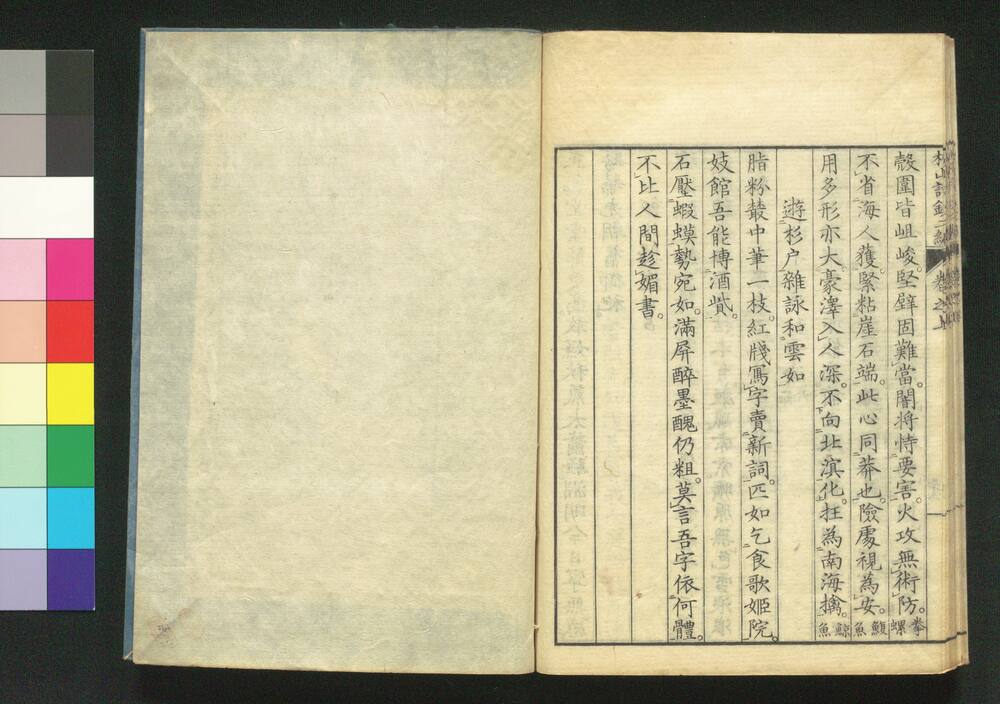 殼圍皆岨峻。堅壁固難當。闇将恃要害。火攻無術防。拳螺
不省海人獲。緊粘崖石端。此心同莽也。險處視為安。鰒魚
用多形亦大。豪澤入人深。不向北溟化。狂為南海擒。鯨魚
遊杉户雜詠和雲如
脂粉叢中筆一枝。紅牋寫字賣新詞。匹如乞食歌姬院。
妓館吾能博酒貲。
石壓蝦蟆勢宛如。滿屏醉墨醜仍粗。莫言吾字依何體。
不比人間趁媚書。